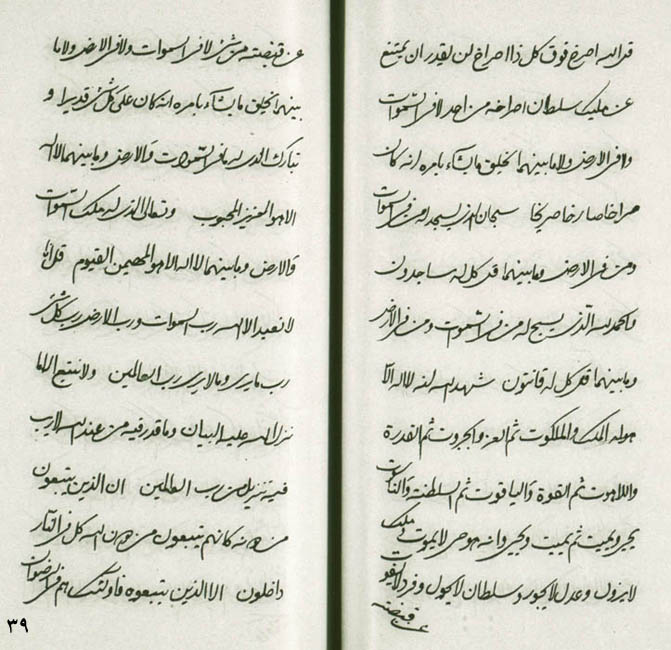 قل الله اصرخ فوق كل ذا اصراخ لن يقدر ان يمتنع
عن مليك سلطان اصراخه من احد لا في السموات
ولا في الارض ولا ما بينهما يخلق ما يشاء بامره انه كان
صراخا صارخا صريخا سبحان الذي يسجد له من في السموات
ومن في الارض وما بينهما قل كل له ساجدون
والحمد لله الذي يسبح له من في السموت ومن في الارض
وما بينهما قل كل له قانتون شهد الله انه لا اله الا
هو له الملك والملكوت ثم العز والجبروت ثم القدرة
واللاهوت ثم القوة والياقوت ثم السلطنة والناسوت
يحيي ويميت ثم يميت ويحيي وانه هو حي لا يموت وملك
لا يزول وعدل لا يجور وسلطان لا يحول وفرد لا يفوت
عن قبضته
عن قبضته من شئ لا في السموات ولا في الارض ولا ما
بينهما يخلق ما يشاء بامره انه كان على كل شئ قديرا و
تبارك الذي له ما في السموات والارض وما بينهما لا اله
الا هو العزيز المحبوب وتعالى الذي له ملك السموات
والارض وما بينهما لا اله الا هو المهيمن القيوم قل انا
لا نعبد الا الله رب السموات ورب الارض رب كل شئ
رب ما يرى وما لا يرى رب العالمين ولا نتبع الا ما
نزل الله عليه البيان وما قدر فيه من عند الله لا ريب
فيه تنزيل من رب العالمين ان الذين يتبعون
من دونه كانهم يتبعون من دون الله كل في النار
داخلون الا الذين يتبعوه فاولئك هم في الرضوان
٣٩